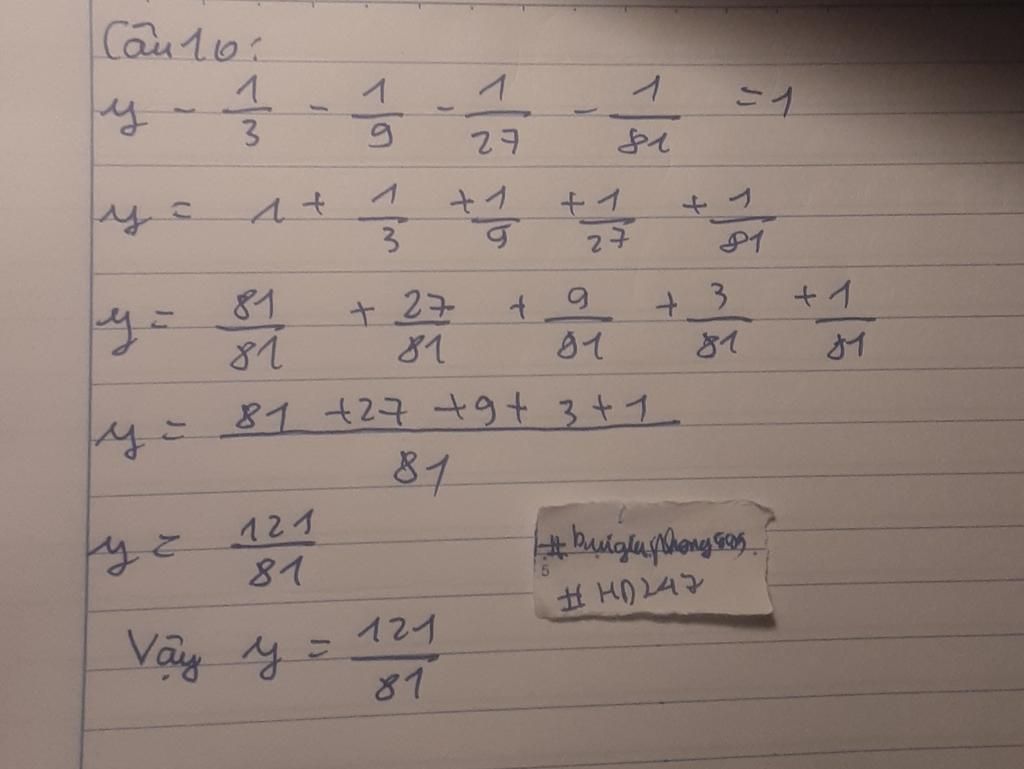 Câu 10:
y - 1/3 - 1/9 - 1/27 - 1/81 = 1
y = 1 + 1/3 + 1/9 + 1/27 + 1/81
y = 81/81 + 27/81 + 9/81 + 3/81 + 1/81
y = (81 + 27 + 9 + 3 + 1)/81
y = 121/81
# HD247
Vậy y = 121/81